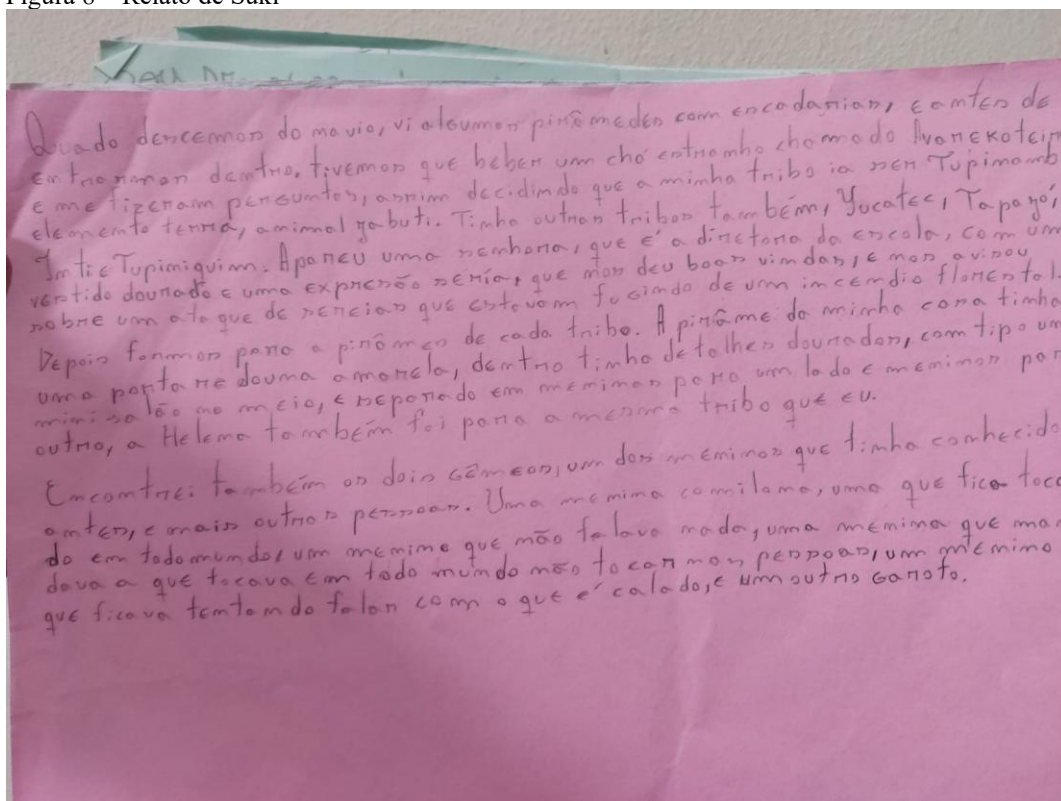 Figura 8 – Relato de Suki
Quado descemos do navio, vi algumas pirâmedes com encadarias, e antes de
entrarmos dentro, tivemos que beber um chá estranho chamado Avanekotein
e me fizeram perguntas, assim decidindo que a minha tribo ia ser Tupinamb
elemento terra, animal jabuti. Tinha outras tribos também, Yucatec, Tapajó,
Inti e Tupiniquim. Apareu uma senhora, que é a diretora da escola, com um
vestido dourado e uma expresão séria, que nos deu boas vindas, e nos avisou
sobre um ataque de sereias que estavam fugindo de um incendio florestal.
Depois formos para a pirâmes de cada tribo. A pirâme da minha casa tinha
uma porta redouma amarela, dentro tinha detalhes dourados, com tipo um
mini salão no meio, e separado em meninas para um lado e meninos par
outro, a Helena também foi para a mesma tribo que eu.
Encontrei também os dois gêmeos, um dos meninos que tinha conhecido
antes, e mais outras pessoas. Uma menina comilana, uma que fica toca
do em todo mundo, um menino que não falava nada, uma menina que man
dava a que tocava em todo mundo não tocar nas pessoas, um menino
que ficava tentando falar com o que é calado, e um outro garoto.